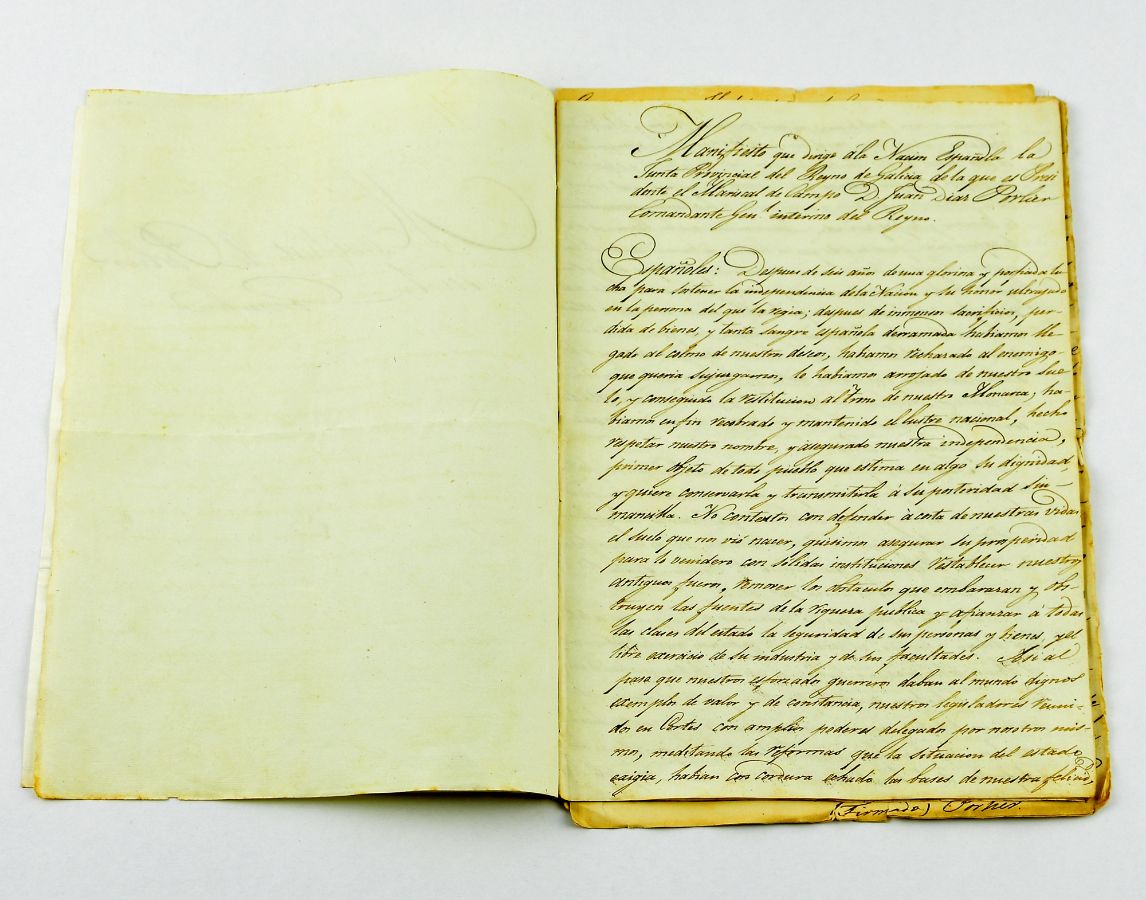 Manifiesto que dirige á la Nacion Española la
Junta Provincial del Reyno de Galicia de la que es Presi
dente el Mariscal de Campo D Juan Diaz Porlier
Comandante Genl interino del Reyno.
Españoles: Despues de seis años de una gloriosa y porfiada lu
cha para sostener la independencia de la Nacion y su honor ultrajado
en la persona del que la regia; despues de inmensos sacrificios, per-
dida de bienes, y tanta sangre española derramada habiamos lle
gado al colmo de nuestros deseos, habiamos rechazado al enemigo
que queria sujuzgarnos, le habiamos arrojado de nuestro sue-
lo, y conseguido la restitucion al Trono de nuestro Monarca; ha-
biamos en fin recobrado y mantenido el lustre nacional, hecho
respetar nuestro nombre, y asegurado nuestra independencia,
primer objeto de todo pueblo que estima en algo su dignidad,
y quiere conservarla y transmitirla á su posteridad sin
mancilla. No contentos con defender á costa de nuestras vidas
el suelo que nos vió nacer, quisimos asegurar su prosperidad
para lo venidero con sólidas instituciones restablecer nuestros
antiguos fueros, remover los obstaculos que embarazan y obs-
truyen las fuentes de la riqueza publica y afianzar á todas
las clases del estado la seguridad de sus personas y bienes, y el
libre exercicio de su industria y de sus facultades. Asi al
paso que nuestros esforzados guerreros daban al mundo dignos
exemplos de valor y de constancia, nuestros legisladores reuni-
dos en Cortes con amplios poderes delegados por nosotros mis-
mos, meditando las reformas que la situacion del estado
exigia, habian con cordura echado las bases de nuestra felicid,
(Firmado) Porlier.